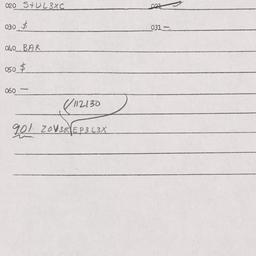 020 S+UL3XC
030 $ 031 —
040 BAR
050 $
060 —
112130
901 ZOV3REP3L3X